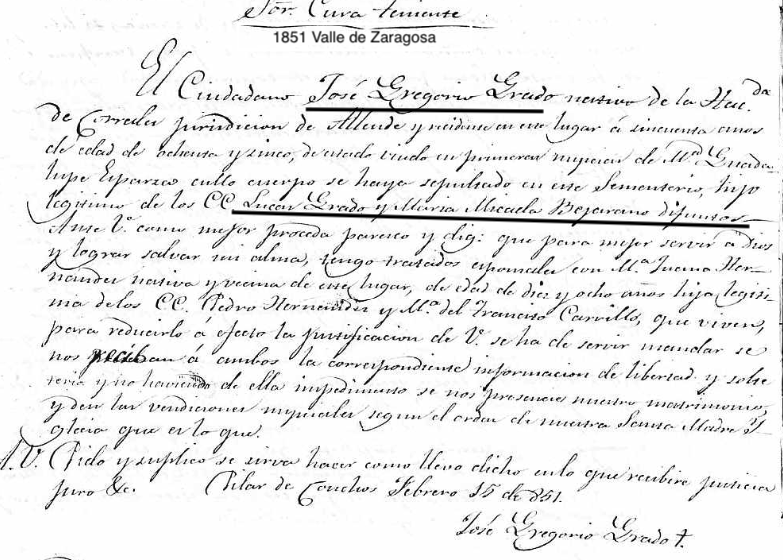 Sor. Cura teniente
1851 Valle de Zaragosa
El Ciudadano José Gregorio Grado nativo de la Hac.da
de Corrales juridicion de Allende y recidente en este lugar á sincuenta anos
de edad de ochenta y sinco, de estado viudo en primeras nupcias de M.a Guada
lupe Esparza cullo cuerpo se haya sepultado en este Sementerio, hijo
legitimo de los CC. Lucas Grado y Maria Micaela Bejarano difuntos
Ante V. como mejor proceda paresco y digo: que para mejor servir a Dios
y lograr salvar mi alma, tengo tratados esponsales con M.a Juana Her-
nandez nativa y vecina de este lugar, de edad de diez y ocho años hija legiti
ma de los CC. Pedro Hernandez y M.a del Transito Carrillo, que viven,
para reducirlo a efecto la justificacion de V. se ha de servir mandar se
nos reciban á ambos la correspondiente informacion de libertad y solte
reria y no haviendo de ella impedimento se nos presencie nuestro matrimonio,
y den las vendiciones nupciales segun el orden de nuestra Santa Madre Y
glecia que es lo que.
A V. Pido y suplico se sirva hacer como llevo dicho en lo que recibire justicia
juro &c. Pilar de Conchos Febrero 15 de 851.
José Gregorio Grado †.